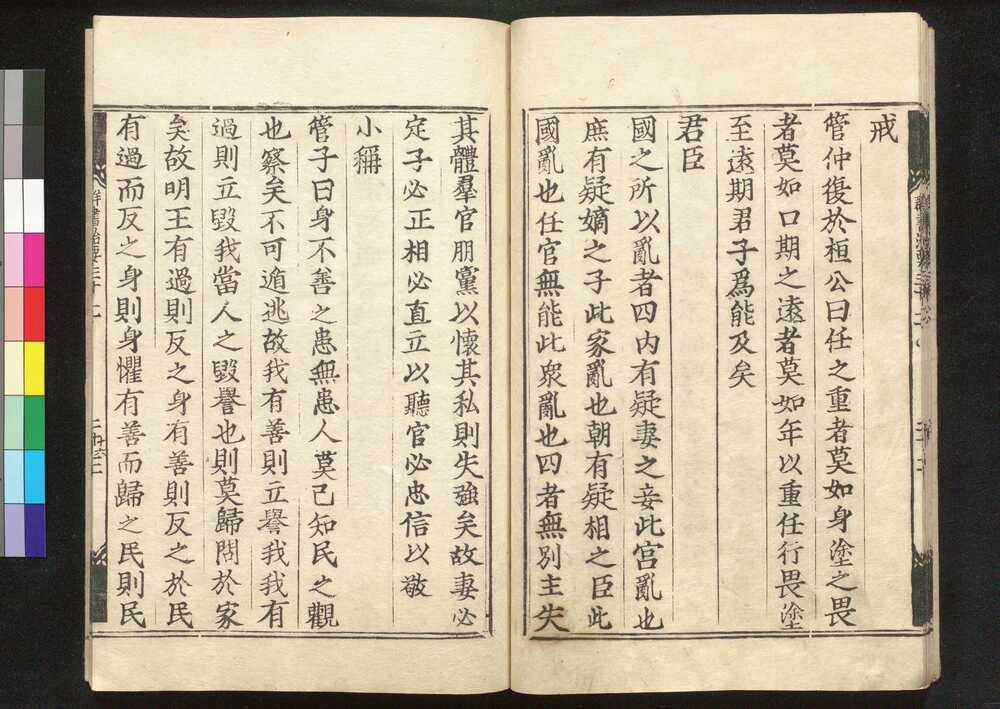 戒
管仲復於桓公曰任之重者莫如身塗之畏
者莫如口期之遠者莫如年以重任行畏塗
至遠期君子爲能及矣
君臣
國之所以亂者四内有疑妻之妾此宮亂也
庶有疑嫡之子此家亂也朝有疑相之臣此
國亂也任官無能此衆亂也四者無別主失
其體羣官朋黨以懷其私則失強矣故妻必
定子必正相必直立以聽官必忠信以敬
小稱
管子曰身不善之患無患人莫己知民之觀
也察矣不可遁逃故我有善則立譽我我有
過則立毀我當人之毀譽也則莫歸問於家
矣故明王有過則反之身有善則反之於民
有過而反之身則身懼有善而歸之民則民
群書治要三十二